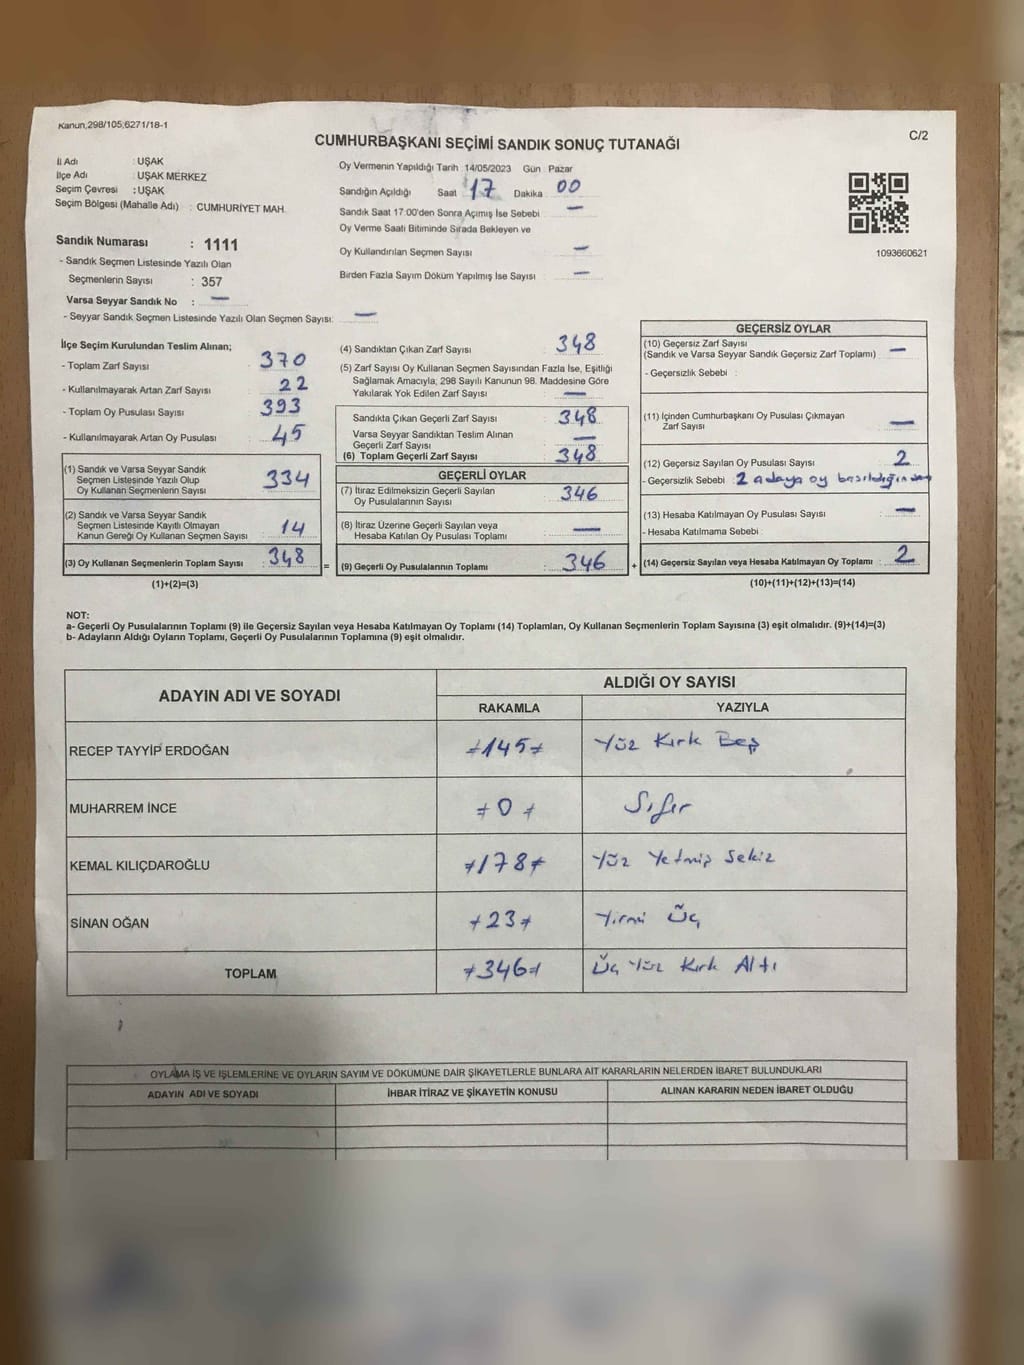 Kanun,298/105,6271/18-1
C/2
CUMHURBAŞKANI SEÇİMİ SANDIK SONUÇ TUTANAĞI
İl Adı : UŞAK
İlçe Adı : UŞAK MERKEZ
Seçim Çevresi : UŞAK
Seçim Bölgesi (Mahalle Adı) : CUMHURİYET MAH.
Sandık Numarası : 1111
- Sandık Seçmen Listesinde Yazılı Olan
Seçmenlerin Sayısı : 357
Varsa Seyyar Sandık No : —
- Seyyar Sandık Seçmen Listesinde Yazılı Olan Seçmen Sayısı: —
Oy Vermenin Yapıldığı Tarih : 14/05/2023 Gün : Pazar
Sandığın Açıldığı Saat : 17 Dakika : 00
Sandık Saat 17:00'den Sonra Açımış İse Sebebi : —
Oy Verme Saati Bitiminde Sırada Bekleyen ve
Oy Kullandırılan Seçmen Sayısı : —
Birden Fazla Sayım Döküm Yapılmış İse Sayısı : —
1093660621
İlçe Seçim Kurulundan Teslim Alınan;
- Toplam Zarf Sayısı : 370
- Kullanılmayarak Artan Zarf Sayısı : 22
- Toplam Oy Pusulası Sayısı : 393
- Kullanılmayarak Artan Oy Pusulası : 45
(1) Sandık ve Varsa Seyyar Sandık
Seçmen Listesinde Yazılı Olup
Oy Kullanan Seçmenlerin Sayısı : 334
(2) Sandık ve Varsa Seyyar Sandık
Seçmen Listesinde Kayıtlı Olmayan
Kanun Gereği Oy Kullanan Seçmen Sayısı : 14
(3) Oy Kullanan Seçmenlerin Toplam Sayısı : 348
(1)+(2)=(3)
(4) Sandıktan Çıkan Zarf Sayısı : 348
(5) Zarf Sayısı Oy Kullanan Seçmen Sayısından Fazla İse, Eşitliği
Sağlamak Amacıyla, 298 Sayılı Kanunun 98. Maddesine Göre
Yakılarak Yok Edilen Zarf Sayısı : —
Sandıkta Çıkan Geçerli Zarf Sayısı : 348
Varsa Seyyar Sandıktan Teslim Alınan
Geçerli Zarf Sayısı : —
(6) Toplam Geçerli Zarf Sayısı : 348
GEÇERLİ OYLAR
(7) İtiraz Edilmeksizin Geçerli Sayılan
Oy Pusulalarının Sayısı : 346
(8) İtiraz Üzerine Geçerli Sayılan veya
Hesaba Katılan Oy Pusulası Toplamı : —
= (9) Geçerli Oy Pusulalarının Toplamı : 346 +
GEÇERSİZ OYLAR
(10) Geçersiz Zarf Sayısı
(Sandık ve Varsa Seyyar Sandık Geçersiz Zarf Toplamı) : —
- Geçersizlik Sebebi :
(11) İçinden Cumhurbaşkanı Oy Pusulası Çıkmayan
Zarf Sayısı : —
(12) Geçersiz Sayılan Oy Pusulası Sayısı : 2
- Geçersizlik Sebebi : 2 adaya oy basıldığından
(13) Hesaba Katılmayan Oy Pusulası Sayısı : —
- Hesaba Katılmama Sebebi :
(14) Geçersiz Sayılan veya Hesaba Katılmayan Oy Toplamı : 2
(10)+(11)+(12)+(13)=(14)
NOT:
a- Geçerli Oy Pusulalarının Toplamı (9) ile Geçersiz Sayılan veya Hesaba Katılmayan Oy Toplamı (14) Toplamları, Oy Kullanan Seçmenlerin Toplam Sayısına (3) eşit olmalıdır. (9)+(14)=(3)
b- Adayların Aldığı Oyların Toplamı, Geçerli Oy Pusulalarının Toplamına (9) eşit olmalıdır.
ADAYIN ADI VE SOYADI ALDIĞI OY SAYISI
RAKAMLA YAZIYLA
RECEP TAYYİP ERDOĞAN ≠145≠ Yüz Kırk Beş
MUHARREM İNCE ≠0≠ Sıfır
KEMAL KILIÇDAROĞLU ≠178≠ Yüz Yetmiş Sekiz
SİNAN OĞAN ≠23≠ Yirmi Üç
TOPLAM ≠346≠ Üç Yüz Kırk Altı
OYLAMA İŞ VE İŞLEMLERİNE VE OYLARIN SAYIM VE DÖKÜMÜNE DAİR ŞİKAYETLERLE BUNLARA AİT KARARLARIN NELERDEN İBARET BULUNDUKLARI
ADAYIN ADI VE SOYADI İHBAR İTİRAZ VE ŞİKAYETİN KONUSU ALINAN KARARIN NEDEN İBARET OLDUĞU